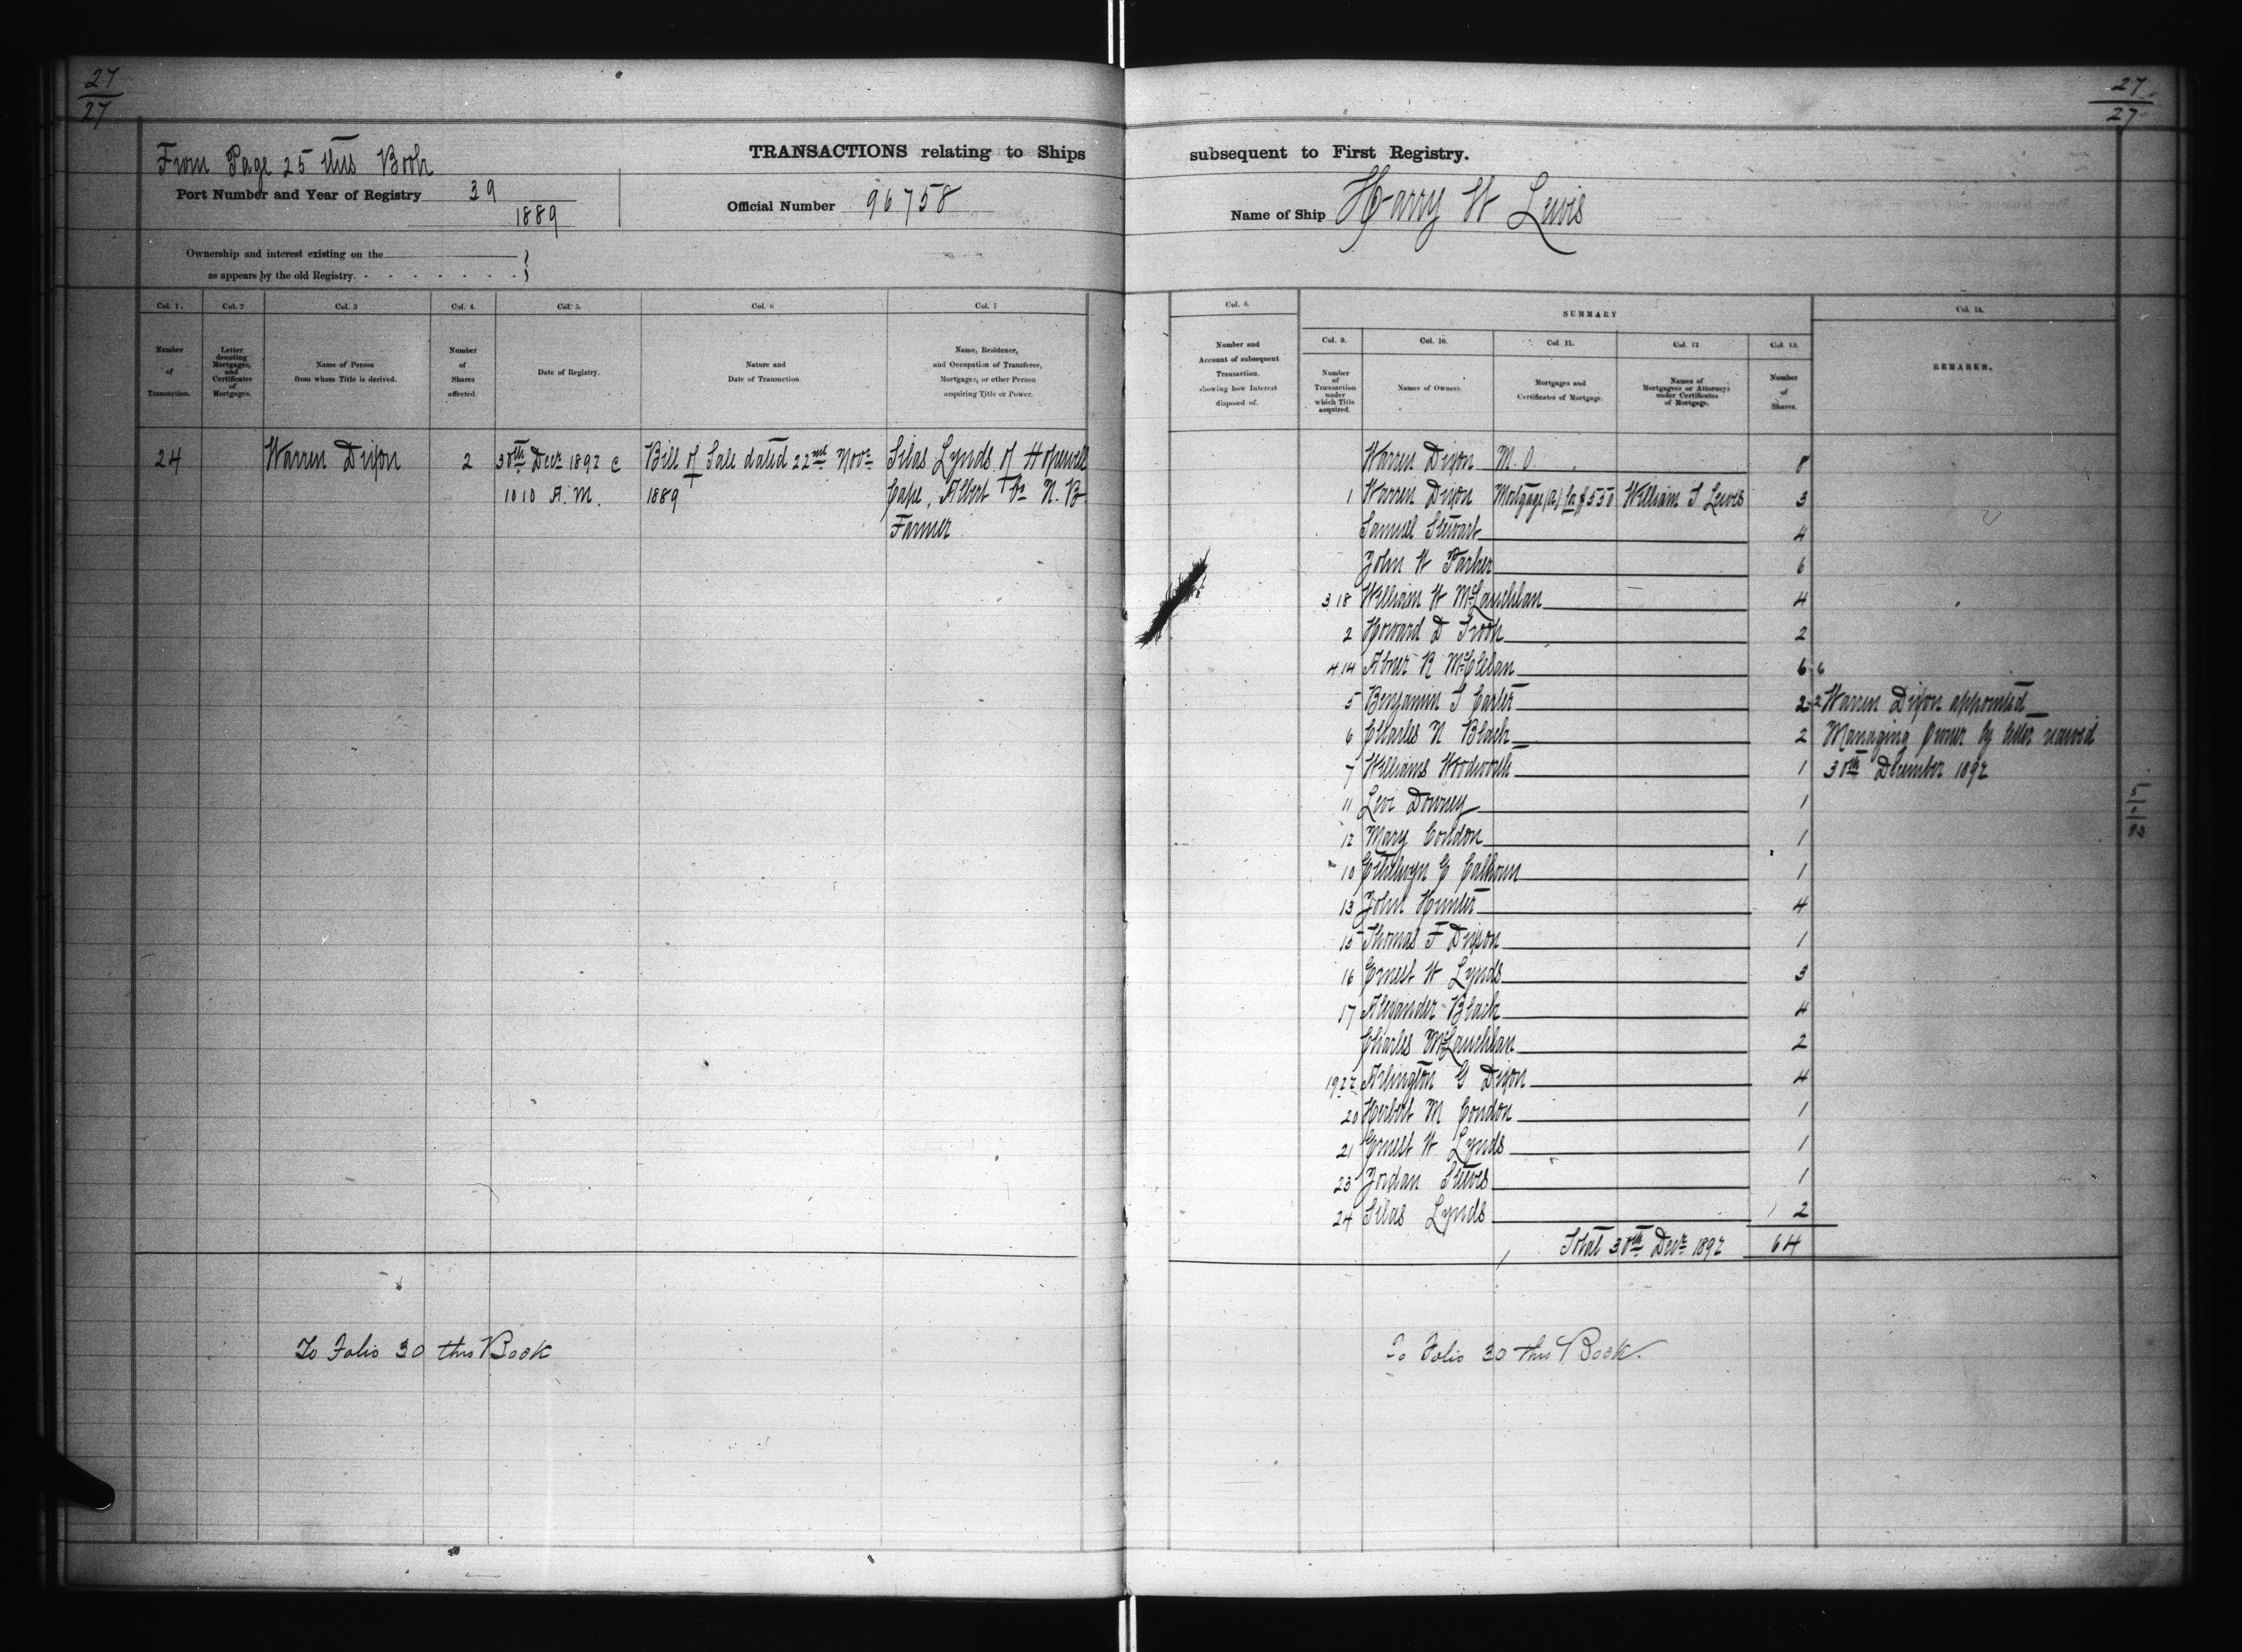 27
27
27.
27
From Page 25 this Book
TRANSACTIONS relating to Ships subsequent to First Registry.
Port Number and Year of Registry 39
1889
Official Number 96758
Name of Ship Harry W Lewis
Ownership and interest existing on the
as appears by the old Registry.
Col. 1.
Number
of
Transaction.
Col. 2
Letter
denoting
Mortgages,
and
Certificates
of
Mortgages.
Col. 3
Name of Person
from whom Title is derived.
Col. 4.
Number
of
Shares
affected.
Col. 5.
Date of Registry.
Col. 6
Nature and
Date of Transaction
Col. 7
Name, Residence,
and Occupation of Transferee,
Mortgagee, or other Person
acquiring Title or Power.
24 Warren Dixon 2
30th Decr 1892 @
10 10 A. M.
Bill of Sale dated 22nd Novr
1889
Silas Lynds of Hopewell
Cape, Albert Co N. B
Farmer
To Folio 30 this Book
Col. 8.
Number and
Account of subsequent
Transaction,
showing how Interest
disposed of.
SUMMARY
Col. 9.
Number
of
Transaction
under
which Title
acquired.
Col. 10.
Names of Owners.
Col. 11.
Mortgages and
Certificates of Mortgage.
Col. 12
Names of
Mortgagees or Attorneys
under Certificates
of Mortgage.
Col. 13.
Number
of
Shares.
Col. 14.
REMARKS.
Warren Dixon M. O. 8
1 Warren Dixon Mortgage (A) for $550 William T Lewis 3
Samuel Stewart 4
John W Parker 6
3 18 William W McLauchlan 4
2 Howard D Troop 2
4 14 Abner R McClelan 6 6
5 Benjamin T Carter 2 2
6 Charles N Black 2
7 Williams Woodworth 1
11 Levi Downey 1
12 Mary Condon 1
10 Ethelwyn G Calhoun 1
13 John Hunter 4
15 Thomas F Dixon 1
16 Ernest W Lynds 3
17 Alexander Black 4
Charles McLauchlan 2
19 22 Arlington G Dixon 4
20 Herbert M Condon 1
21 Ernest W Lynds 1
23 Jordan Steeves 1
24 Silas Lynds 2
Total 30th Decr 1892 64
Warren Dixon appointed
Managing Owner by letter received
30th December 1892
To Folio 30 this Book.